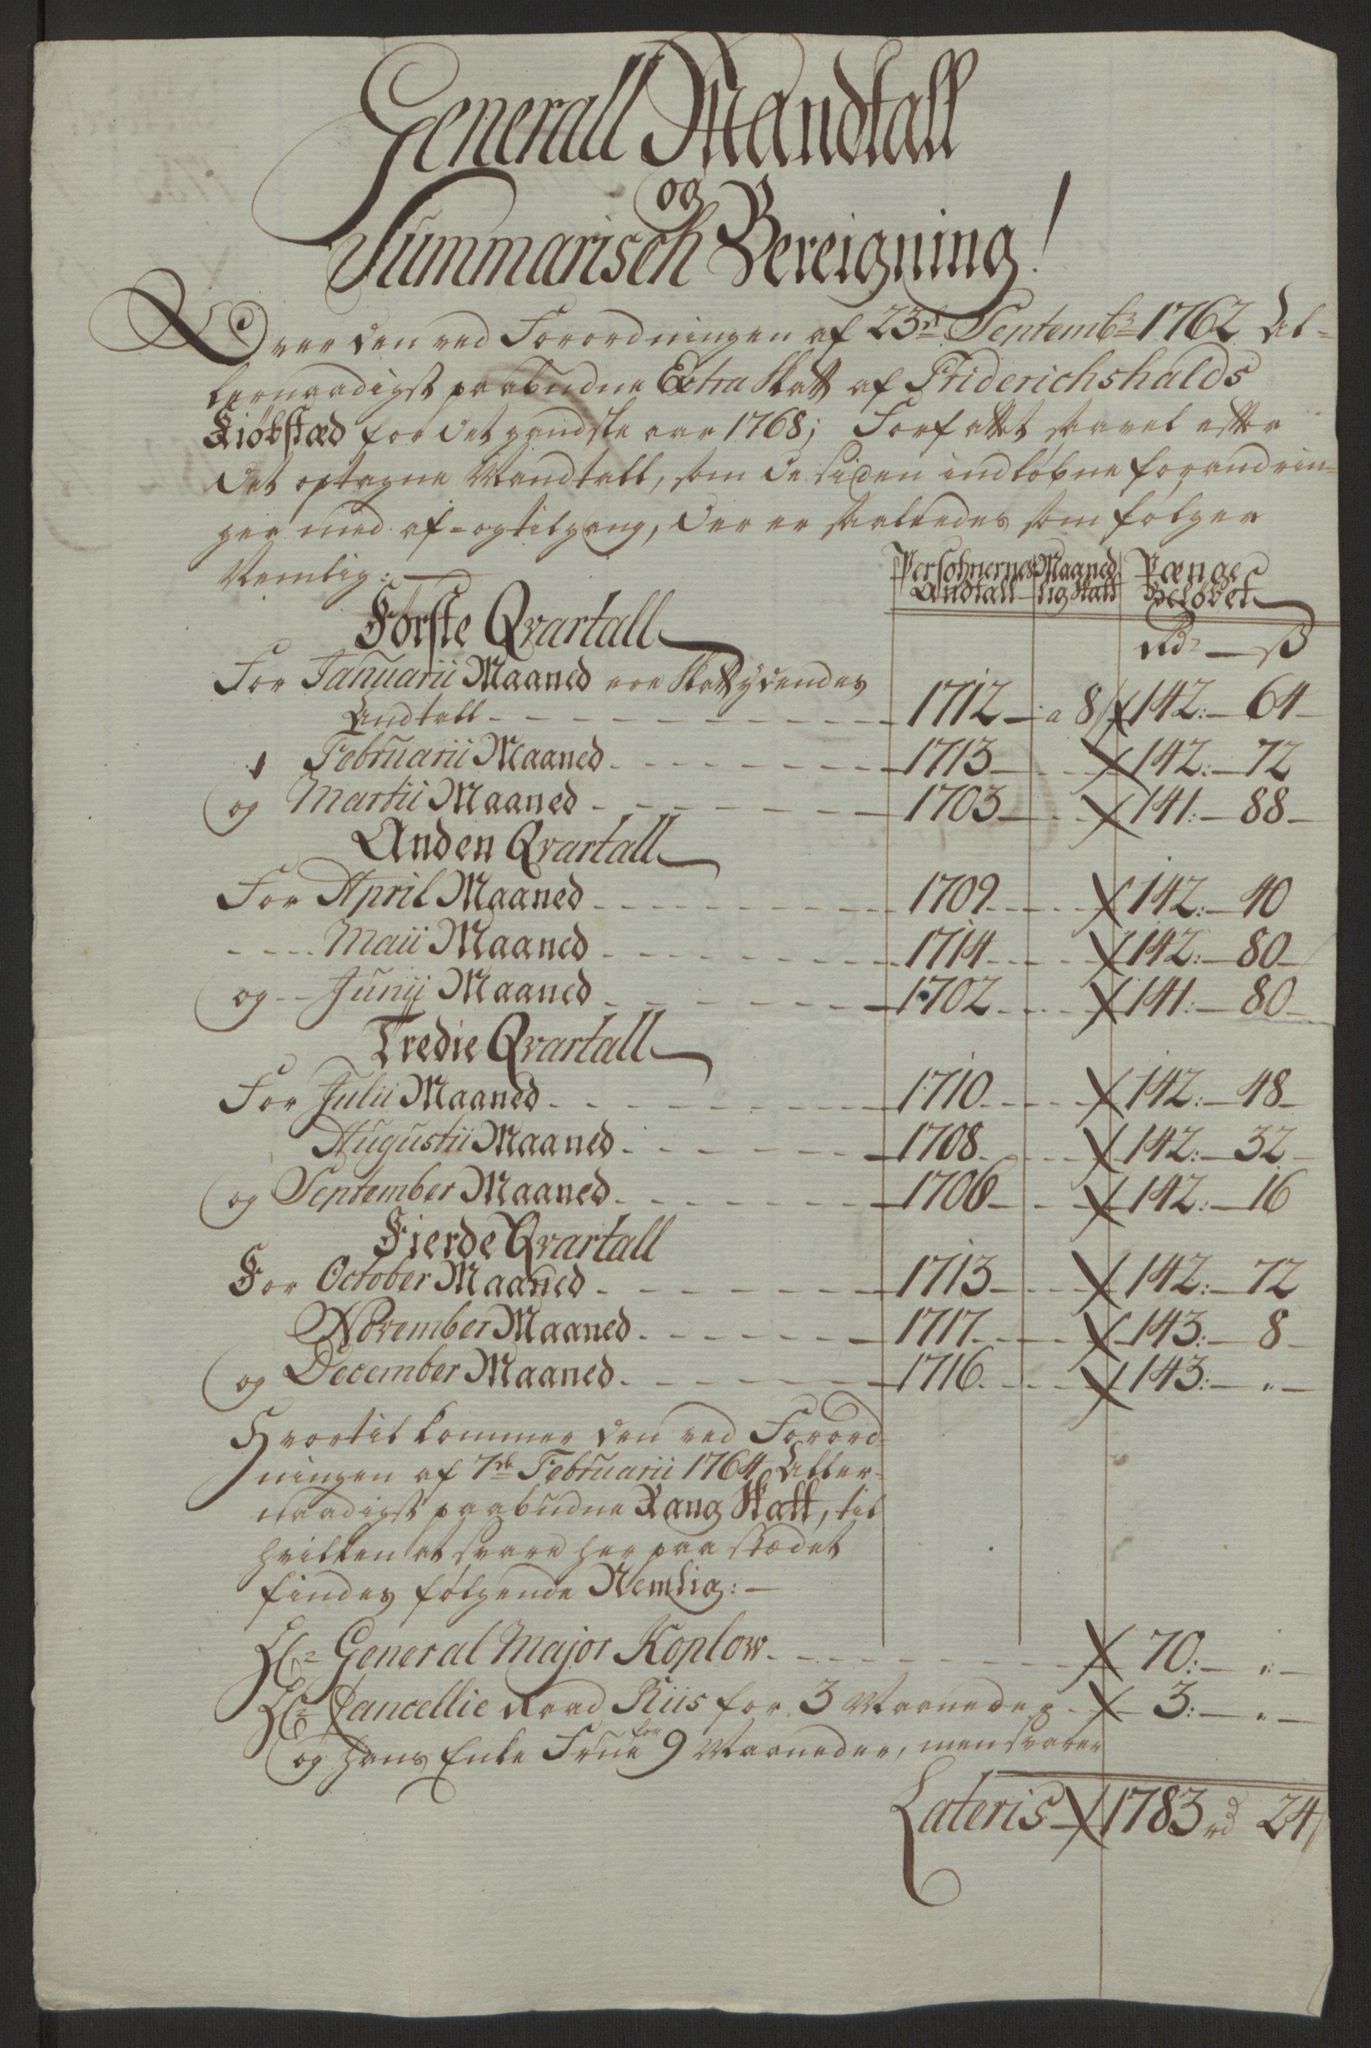 Generall Mandtall
og
Summarisch Bereigning!
Over den ved Forordningen af 23de Septembr 1762 Al-
lernaadigst paabudne Extra Skatt af Friderichshalds
Kiøbstæd for det gandske aar 1768; Forfattet saavel efter
det optagne Mandtall, som de siden indløbne forandrin-
ger med af- og tilgang, der er saaledes som følger
Nemlig:
Persohnernes Andtall Maanedlig Skatt Pænge Beløbet
Første Qvartall Rdr ß
For Januarii Maaned ere Skattydendes
Andtall 1712 a 8ß 142: 64
" Februarii Maaned 1713 142: 72
og Martii Maaned 1703 141: 88
Anden Qvartall
For April Maaned 1709 142: 40
Maii Maaned 1714 142: 80
og Junij Maaned 1702 141: 80
Tredie Qvartall
For Julii Maaned 1710 142: 48
Augustii Maaned 1708 142: 32
og September Maaned 1706 142: 16
Fierde Qvartall
For October Maaned 1713 142: 72
November Maaned 1717 143: 8
og December Maaned 1716 143: "
Hvortil kommer den ved Forord-
ningen af 7de Februarii 1764 Aller-
naadigst paabudne Rang Skatt, til
hvilken at svare her paa stædet
findes følgende Nemlig:
Hr General Major Koplow 70: "
Hr Cancellie Raad Riis for 3 Maaneder 3: "
og hans Enke Frue for 9 Maaneder, men svarer
Lateris 1783 rd 24